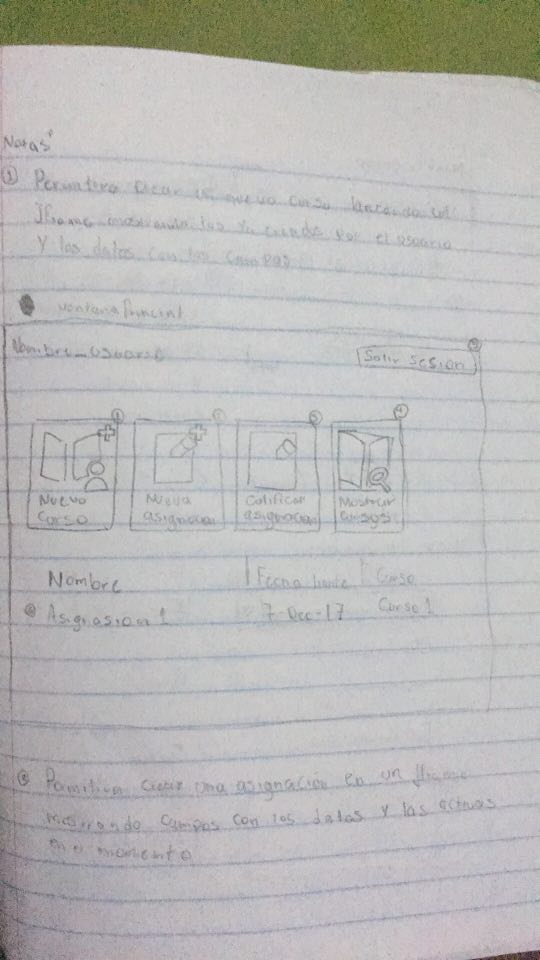 Notas
① Permitira crear un nuevo curso lanzando un
Jframe mostrando los ya creado por el usuario
y los datos con los campos
ventana principal
Nombre_usuario
Salir sesion
Nuevo curso
Nueva asignacion
Calificar asignacion
Mostrar
Nombre Fecha limite Curso
Asignasion 1 7-Dec-17 Curso 1
Permitira crear una asignación en un Jframe
mostrando campos con los datos y las activas
momento